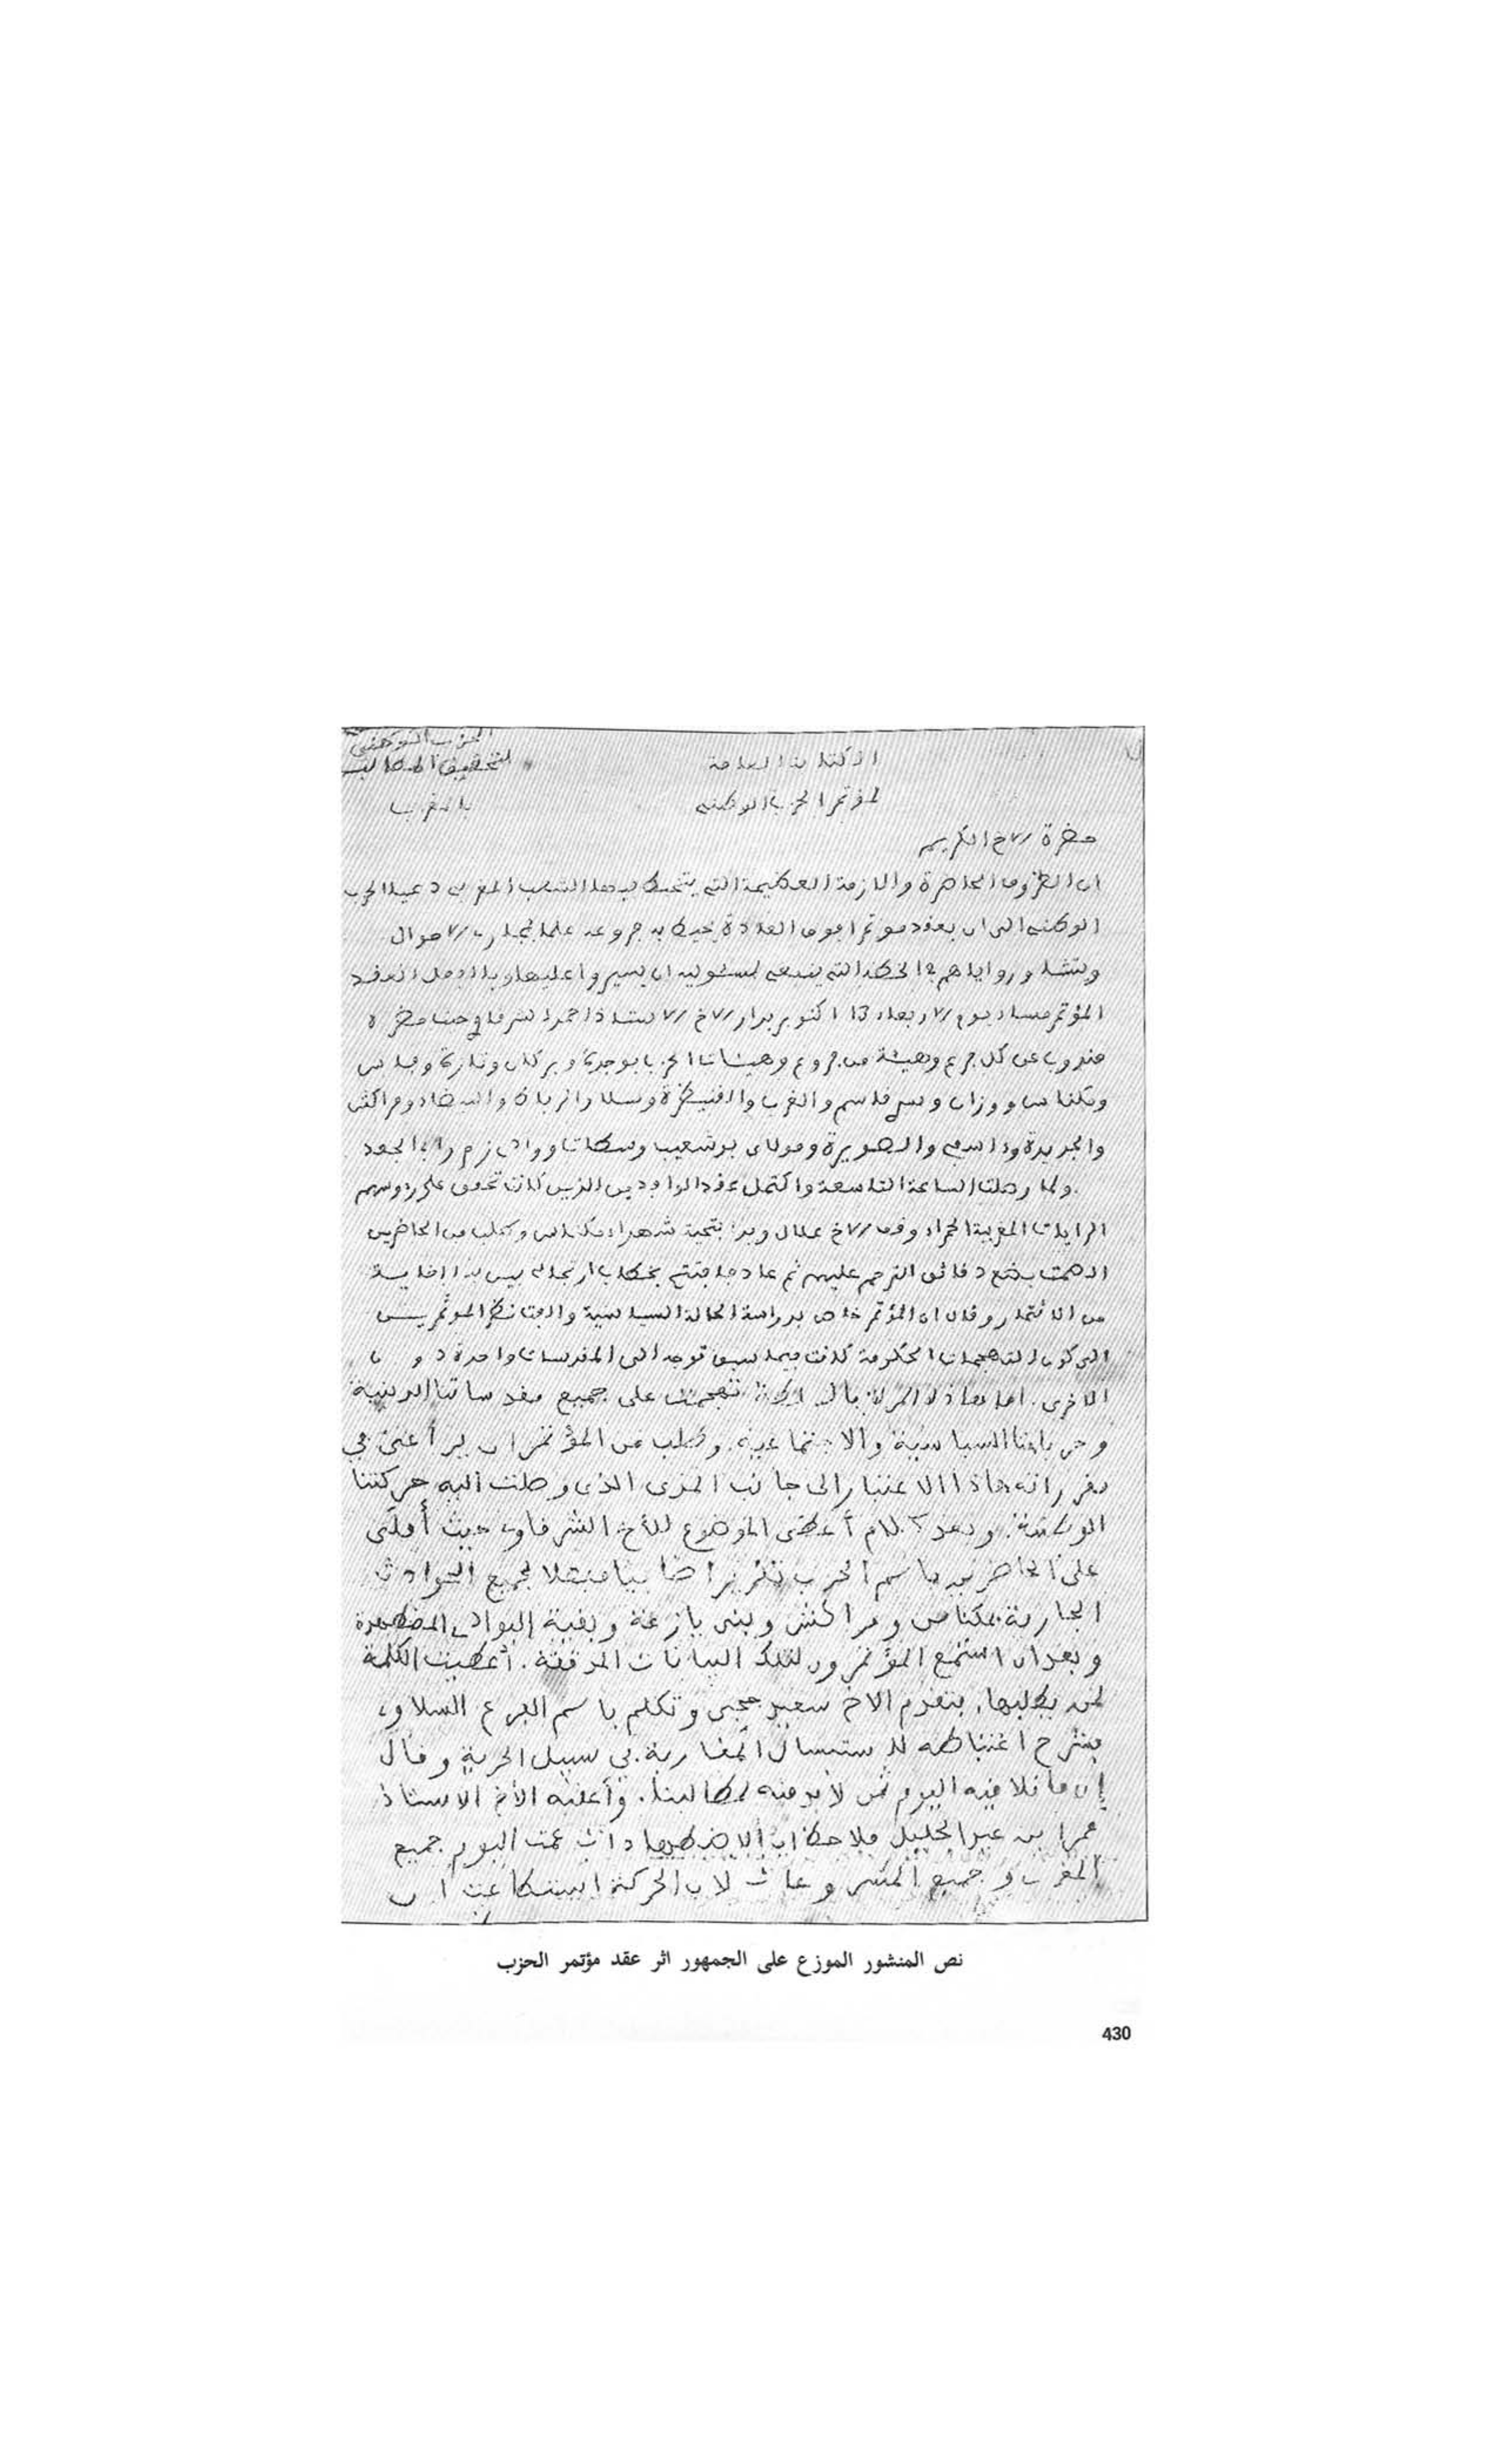 الحزب الوطني
الكتابة العامة
لتحقيق المطالب
لمؤتمر الحزب الوطني
بالمغرب
حضرة الأخ الكريم
ان الظروف الحاضرة والازمة العظيمة التي يتخبط فيها الشعب المغربي دعت الحزب
الوطني الى ان يعقد موتمرا فوق العادة يحيط به فروعه علما بمجاريات الاحوال
ويتشاور واياهم في الخطة التي ينبغي لمسئوليه ان يسيروا عليها وبالفعل انعقد
المؤتمر مساء يوم الاربعاء 13 اكتوبر بدار الاخ الاستاذ احمد الشرقاوي حيث حضره
مندوب عن كل فرع وهيئة من فروع وهيئات الحزب بوجدة وبركان وتازة وفاس
ومكناس ووزان وسي قاسم والغرب والقنيطرة وسلا والرباط والبيضاء ومراكش
والجديدة واسفي والصويرة ومولاي بوشعيب وسطات ووادي زم وابي الجعد
ولما وصلت الساعة التاسعة واكتمل عقد الوافدين الذين كانت تخفق على رؤوسهم
الرايات المغربية الحمراء وقف الاخ علال وبدأ بتحية شهداء مكناس وطلب من الحاضرين
الصمت بضع دقائق الترحم عليهم ثم عاد فافتتح بخطاب ارتجاله بين فيه الغاية
من الائتمار وقال ان المؤتمر خاص بدراسة الحالة السياسية والفت نظر الموتمرين
الى كون التهجمات الحكومة كانت فيما سبق توجه الى المقدسات واحدة دون
الاخرى. اما هاذه المرة تهجمت على جميع مقدساتنا الدينية
وحرياتنا السياسية والاجتماعية. وطلب من المؤتمر ان يراعى في
مقرراته هاذا الاعتبار الى جانب المدى الذي وصلت اليه حركتنا
الوطنية. وبعد كلام أعطى الموضوع للأخ الشرقاوي حيث أملى
على الحاضرين باسم الحزب تقريرا ضافيا مفصلا لجميع الحوادث
الجارية بمكناس ومراكش وبني يازغة وبقية البوادي المضطهدة
وبعد ان استمع المؤتمرون لتلك البيانات المدققة. أعطيت الكلمة
لمن يطلبها. فتقدم الاخ سعيد حجي وتكلم باسم الفرع السلاوي
فشرح اغتباطه لاستبسال المغاربة في سبيل الحرية وقال
إن ما نلاقيه اليوم ثمن لابد منه لمطالبنا. وأعقبه الأخ الاستاذ
عمر ابن عبد الجليل ملاحظا ان الاضطهادات عمت اليوم جميع
المغرب وجميع المشروعات لان الحركة استطاعت ان
نص المنشور الموزع على الجمهور اثر عقد مؤتمر الحزب
430